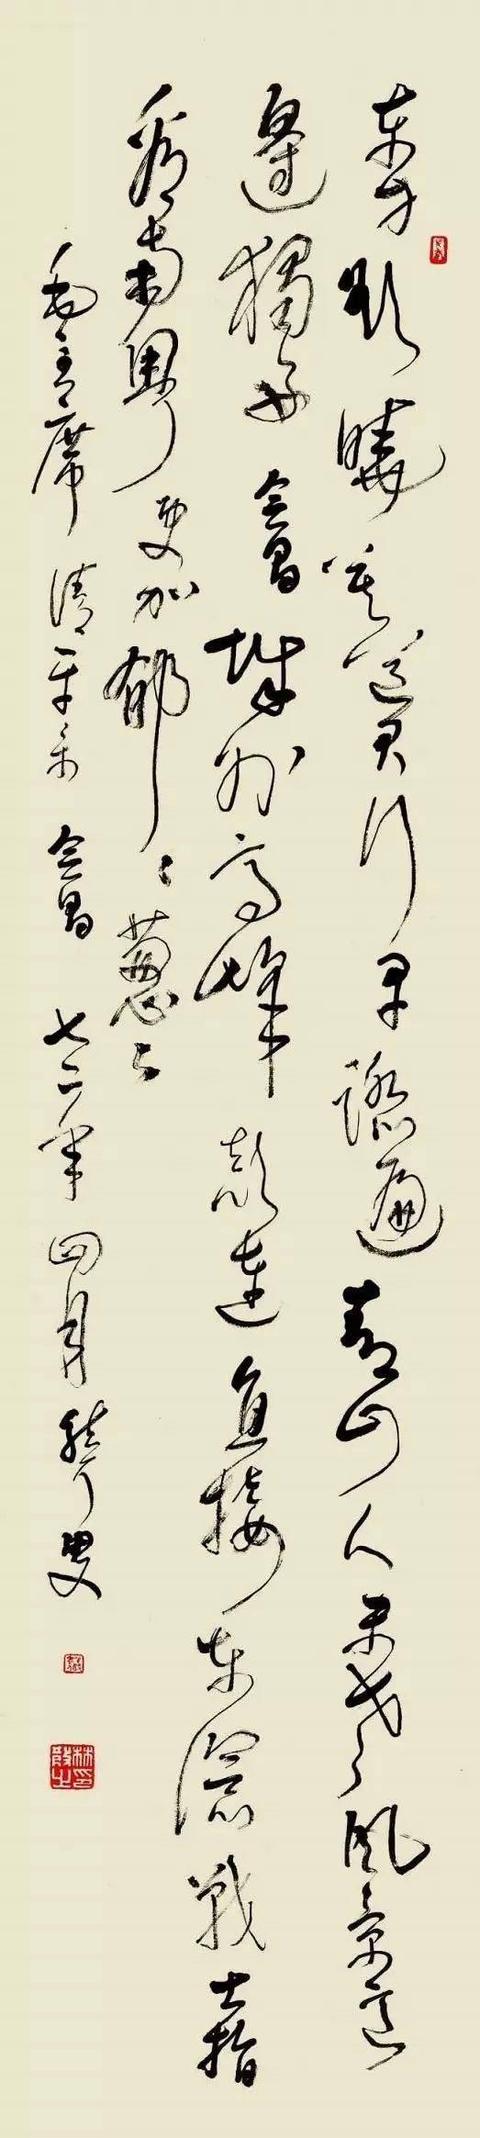 東方欲曉莫道君行早踏遍青山人未老風景這
邊獨好會昌城外高峰顛連直接東溟戰士指
看南粵更加郁〻葱〻
毛主席清平樂會昌七二年四月聾叟
林散之印